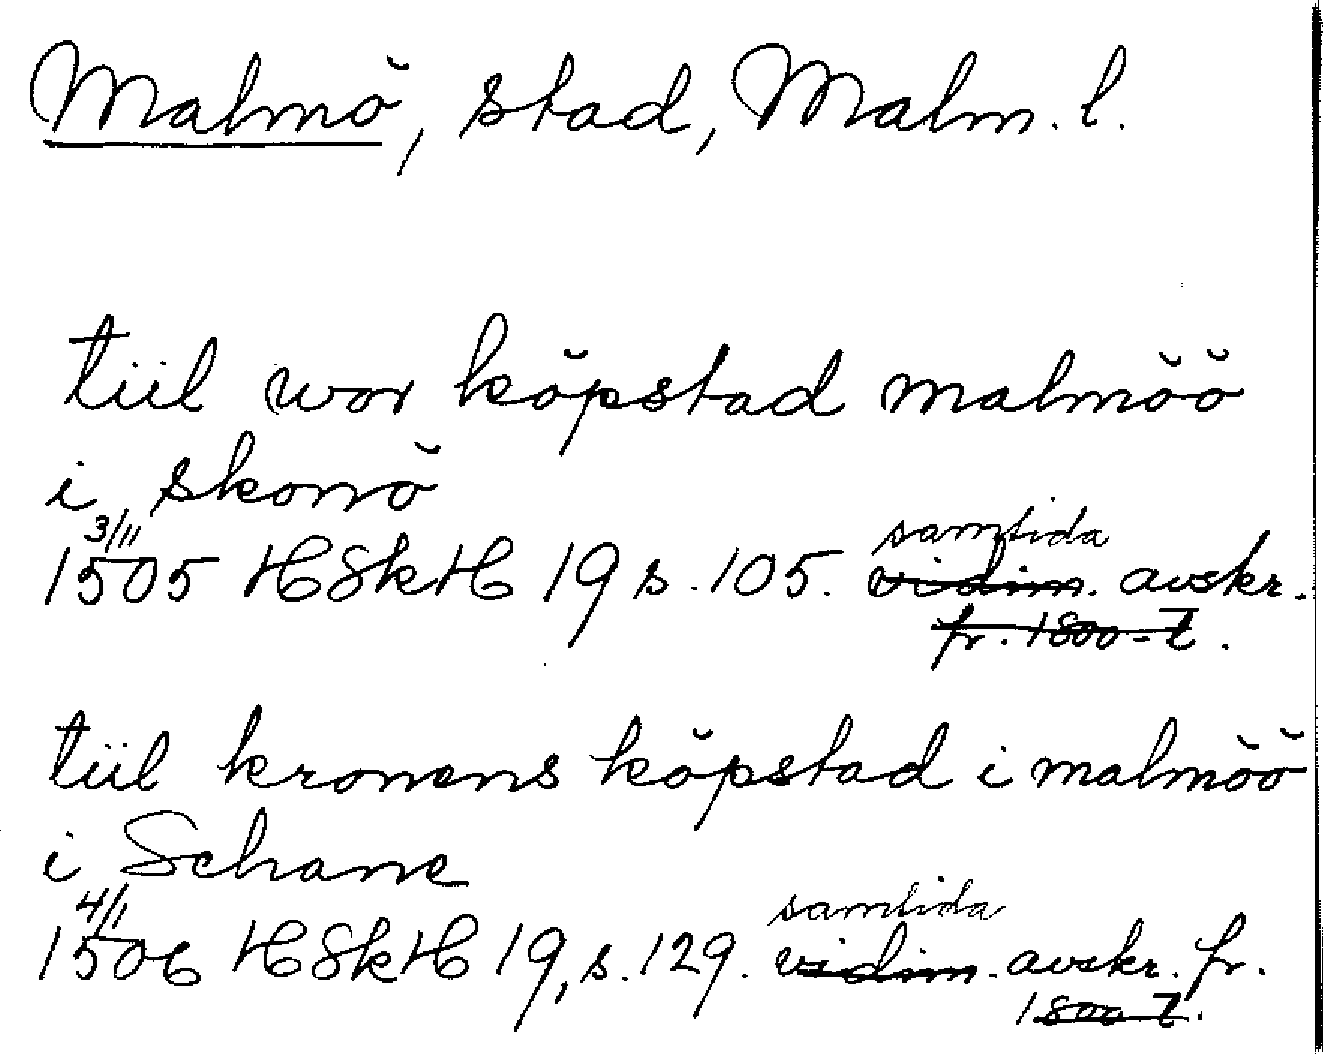 Malmö, stad, Malm. l.
tiil wor köpstad malmöö
i skonnö
3/11 samtida
1505 HSkH 19 s. 105. vidim. avskr.
fr. 1800-t.
tiil kronens köpstad i malmöö
i Schane
4/1 samtida
1506 HSkH 19, s. 129. vidim. avskr. fr.
1800-t.